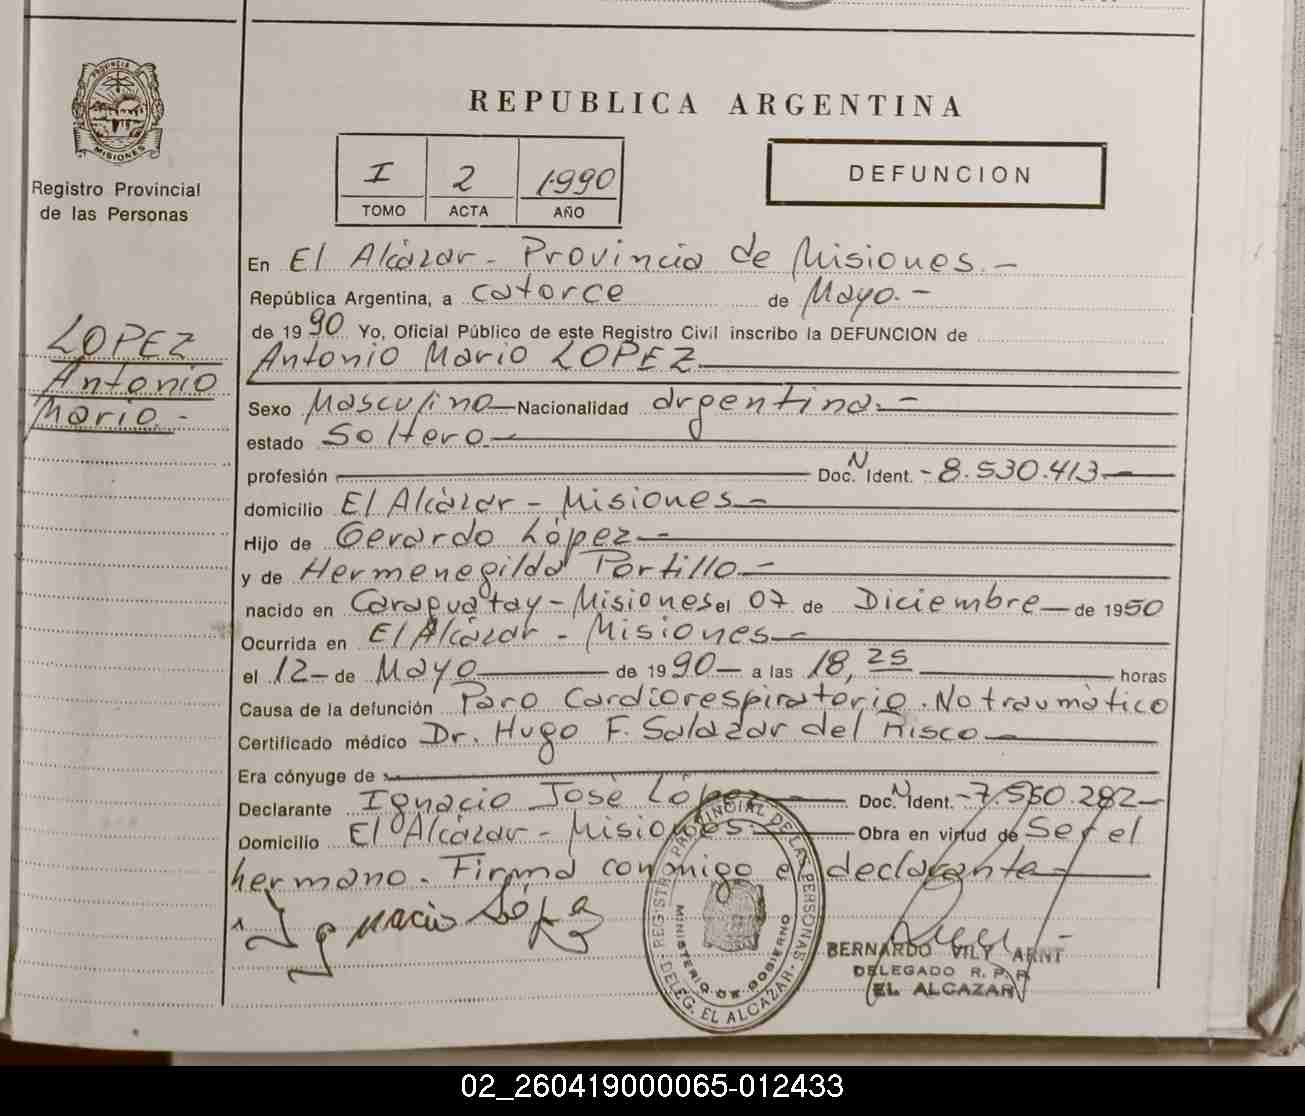 REPUBLICA ARGENTINA
PROVINCIA DE
MISIONES
Registro Provincial
de las Personas
I 2 1.990
TOMO ACTA AÑO
DEFUNCION
LOPEZ
Antonio
Mario.-
En El Alcázar - Provincia de Misiones.-
República Argentina, a catorce de Mayo.-
de 1990 Yo, Oficial Público de este Registro Civil inscribo la DEFUNCION de
Antonio Mario LOPEZ
Sexo Masculino Nacionalidad argentina.-
estado Soltero
profesión Doc. N Ident. - 8.530.413.-
domicilio El Alcázar - Misiones
Hijo de Gerardo López
y de Hermenegilda Portillo.-
nacido en Caraguatay - Misiones el 07 de Diciembre de 1950
Ocurrida en El Alcázar - Misiones
el 12 de Mayo de 1990 a las 18,25 horas
Causa de la defunción Paro Cardiorespiratorio. No traumàtico
Certificado médico Dr. Hugo F. Salazar del Risco
Era cónyuge de
Declarante Ignacio Josè López Doc. N Ident. - 7.550.282
Domicilio El Alcázar - Misiones. Obra en virtud de Ser el
hermano. Firma conmigo el declarante
Ignacio López
REGISTRO PROVINCIAL DE LAS PERSONAS
MINISTERIO DE GOBIERNO
DELEG. EL ALCAZAR
BERNARDO VILY ARNT
DELEGADO R. P. P.
EL ALCAZAR
02_260419000065-012433